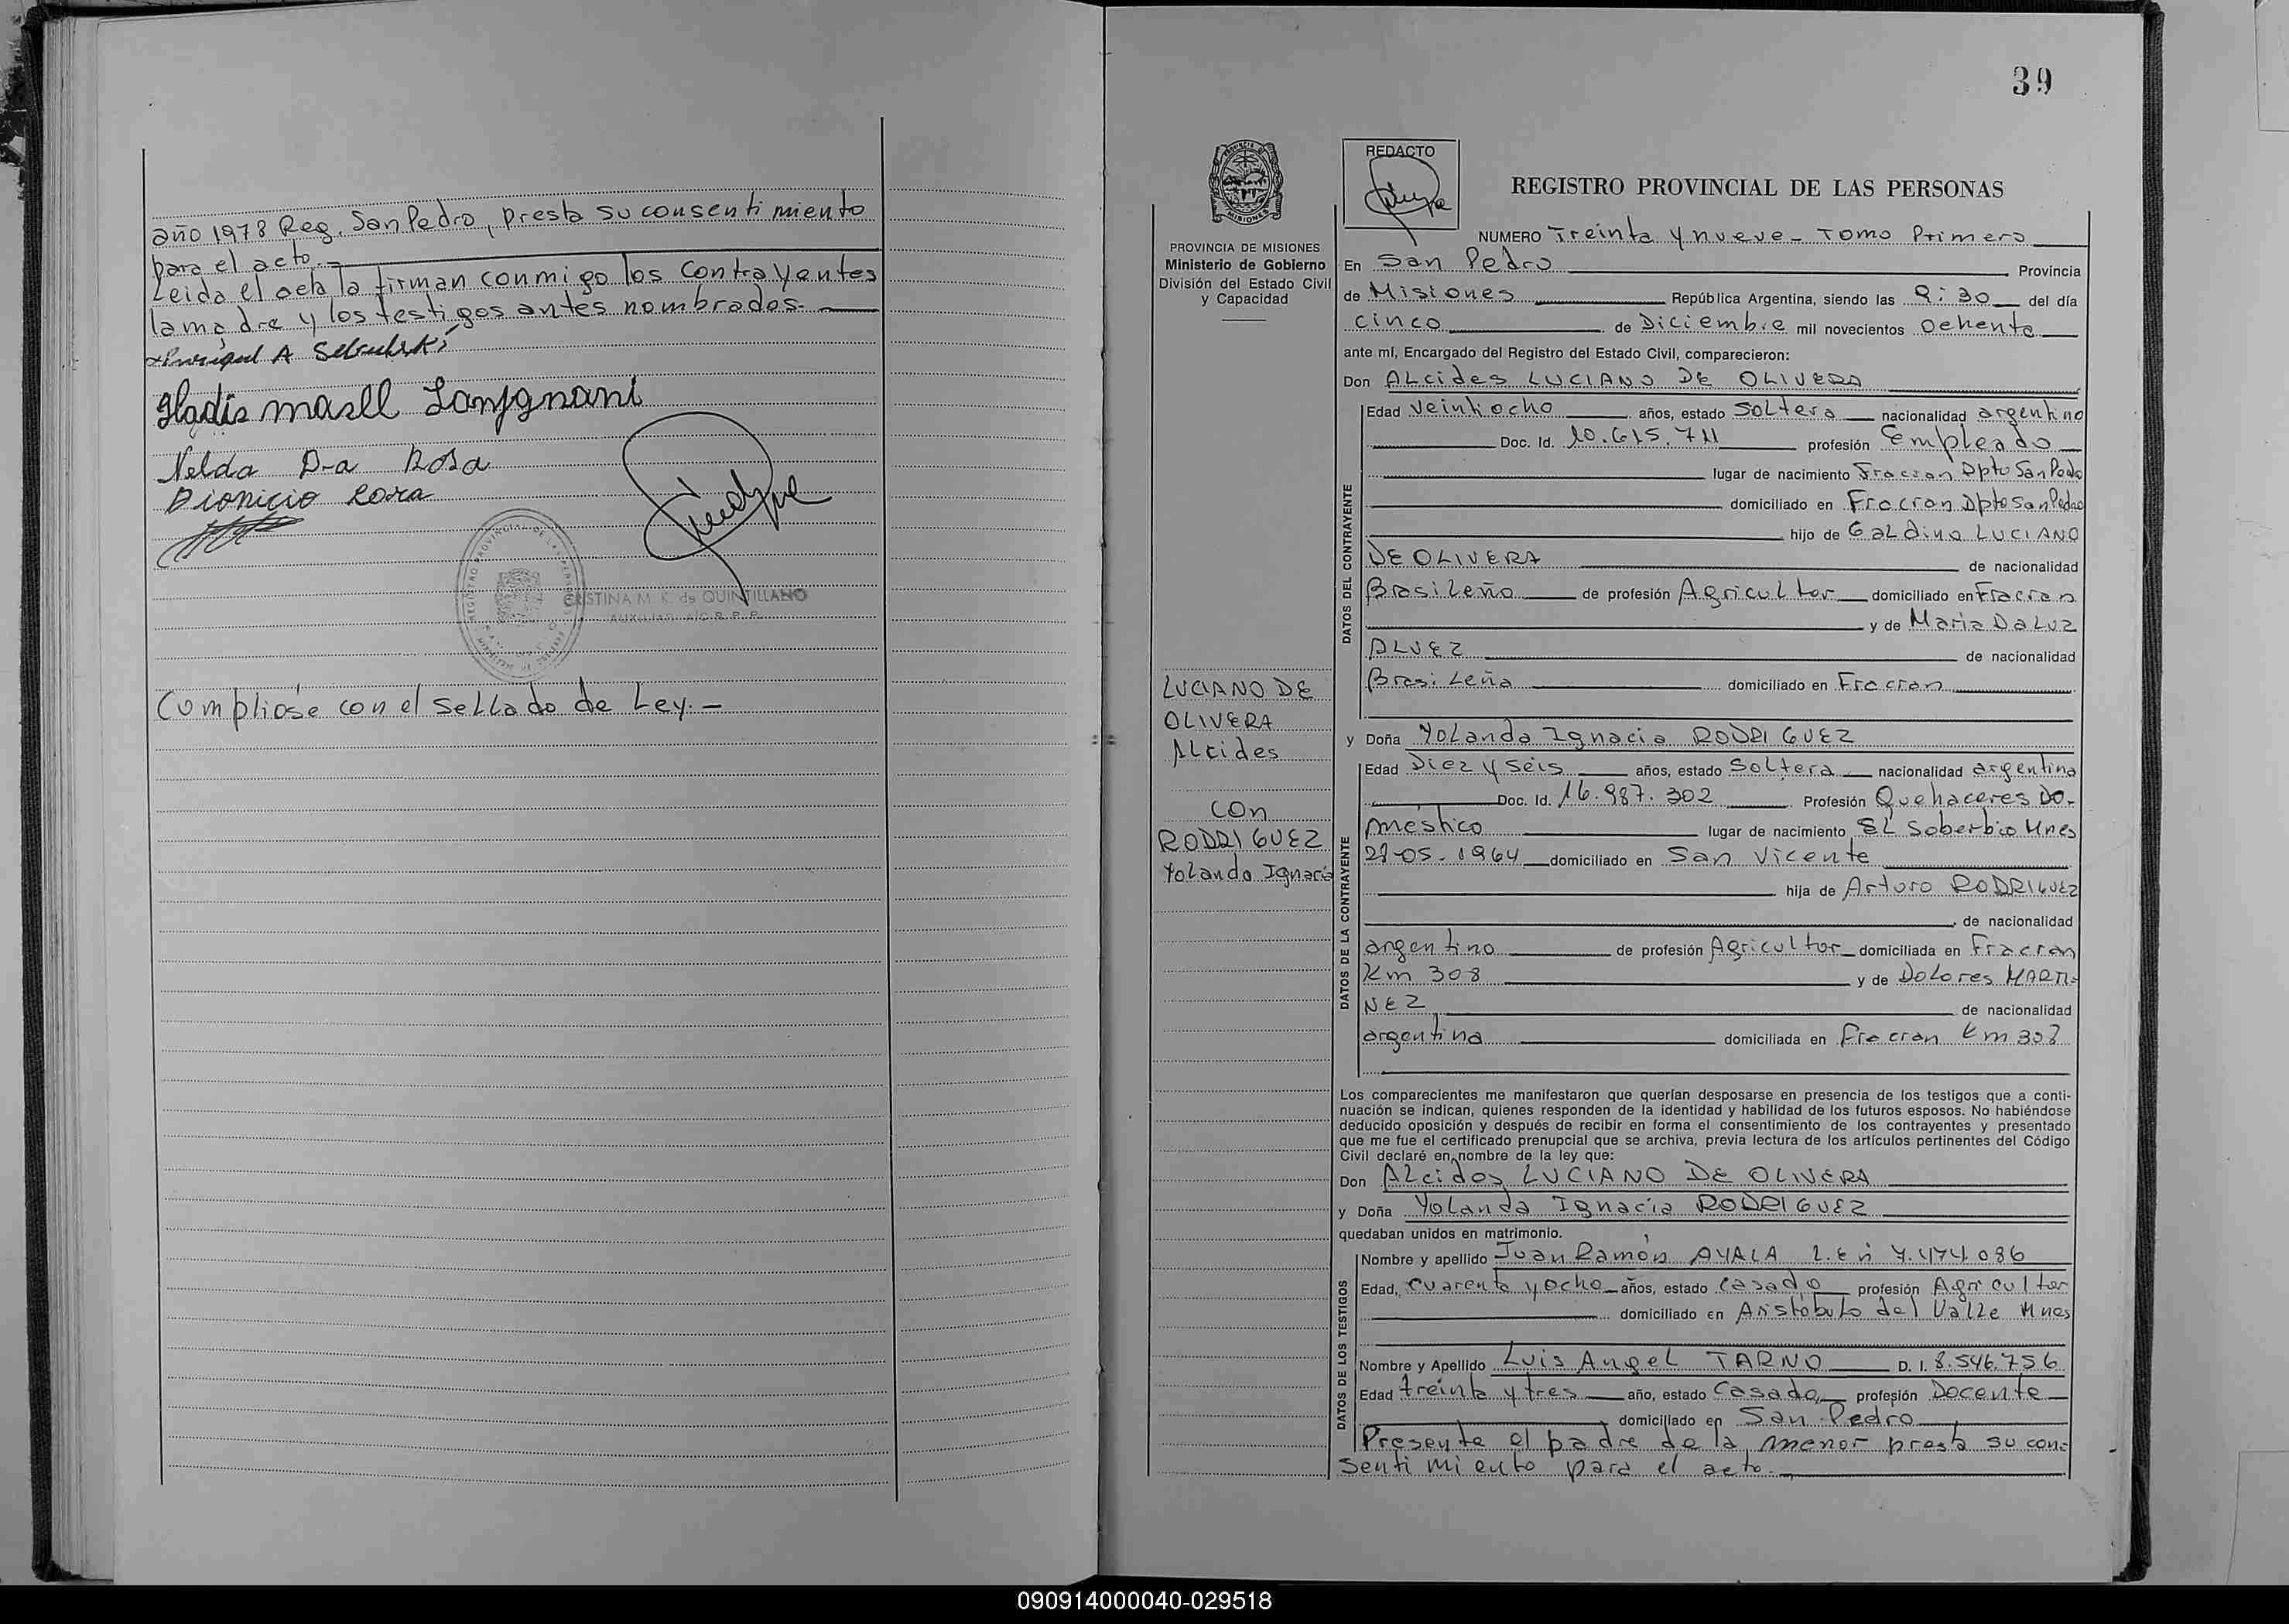 año 1978 Reg. San Pedro, presta su consentimiento
para el acto.-
Leida el acta la firman conmigo los contrayentes
la madre y los testigos antes nombrados.
Gladis
Nelda D-a Rosa
Dionicio
CRISTINA M. K. de QUINTILLANO
AUXILIAR A/C R. P. P.
Cumpliose con el sellado de Ley.-
39
PROVINCIA DE MISIONES
Ministerio de Gobierno
División del Estado Civil
y Capacidad
LUCIANO DE
OLIVERA
Alcides
con
RODRIGUEZ
Yolanda Ignacia
REDACTO
REGISTRO PROVINCIAL DE LAS PERSONAS
NUMERO Treinta y nueve - Tomo Primero
En San Pedro Provincia
de Misiones República Argentina, siendo las 9:30 del día
cinco de Diciembre mil novecientos ochenta
ante mí, Encargado del Registro del Estado Civil, comparecieron:
Don ALcides LUCIANO DE OLIVERA
DATOS DEL CONTRAYENTE
Edad Veintiocho años, estado Soltero nacionalidad argentino
Doc. Id. 10.615.711 profesión Empleado
lugar de nacimiento Fracran Dpto San Pedro
domiciliado en Fracran Dpto San Pedro
hijo de GaLdino LUCIANO
DE OLIVERA de nacionalidad
BrasiLeño de profesión Agricultor domiciliado en Fracran
y de Maria Da Luz
ALVEZ de nacionalidad
BrasiLeña domiciliado en Fracran
y Doña YoLanda Ignacia RODRIGUEZ
DATOS DE LA CONTRAYENTE
Edad Diez y seis años, estado SoLtera nacionalidad argentina
Doc. Id. 16.987.302 Profesión Quehaceres Do-
mestico lugar de nacimiento EL Soberbio Mnes
21-05-1964 domiciliado en San Vicente
hija de Arturo RODRIGUEZ
de nacionalidad
argentino de profesión Agricultor domiciliada en Fracran
Km 308 y de DoLores MARTI-
NEZ de nacionalidad
argentina domiciliada en Fracran Km 308
Los comparecientes me manifestaron que querían desposarse en presencia de los testigos que a conti-
nuación se indican, quienes responden de la identidad y habilidad de los futuros esposos. No habiéndose
deducido oposición y después de recibir en forma el consentimiento de los contrayentes y presentado
que me fue el certificado prenupcial que se archiva, previa lectura de los artículos pertinentes del Código
Civil declaré en nombre de la ley que:
Don ALcides LUCIANO DE OLIVERA
y Doña YoLanda Ignacia RODRIGUEZ
quedaban unidos en matrimonio.
DATOS DE LOS TESTIGOS
Nombre y apellido Juan Ramón AYALA L.E n 7.474.086
Edad, cuarenta y ocho años, estado casado profesión Agricultor
domiciliado en Aristóbulo del Valle Mnes
Nombre y Apellido Luis AngeL TARNO D. I. 8.546.756
Edad treinta y tres año, estado Casado, profesión Docente
domiciliado en San Pedro
Presente el padre de la menor presta su con-
sentimiento para el acto.-
090914000040-029518